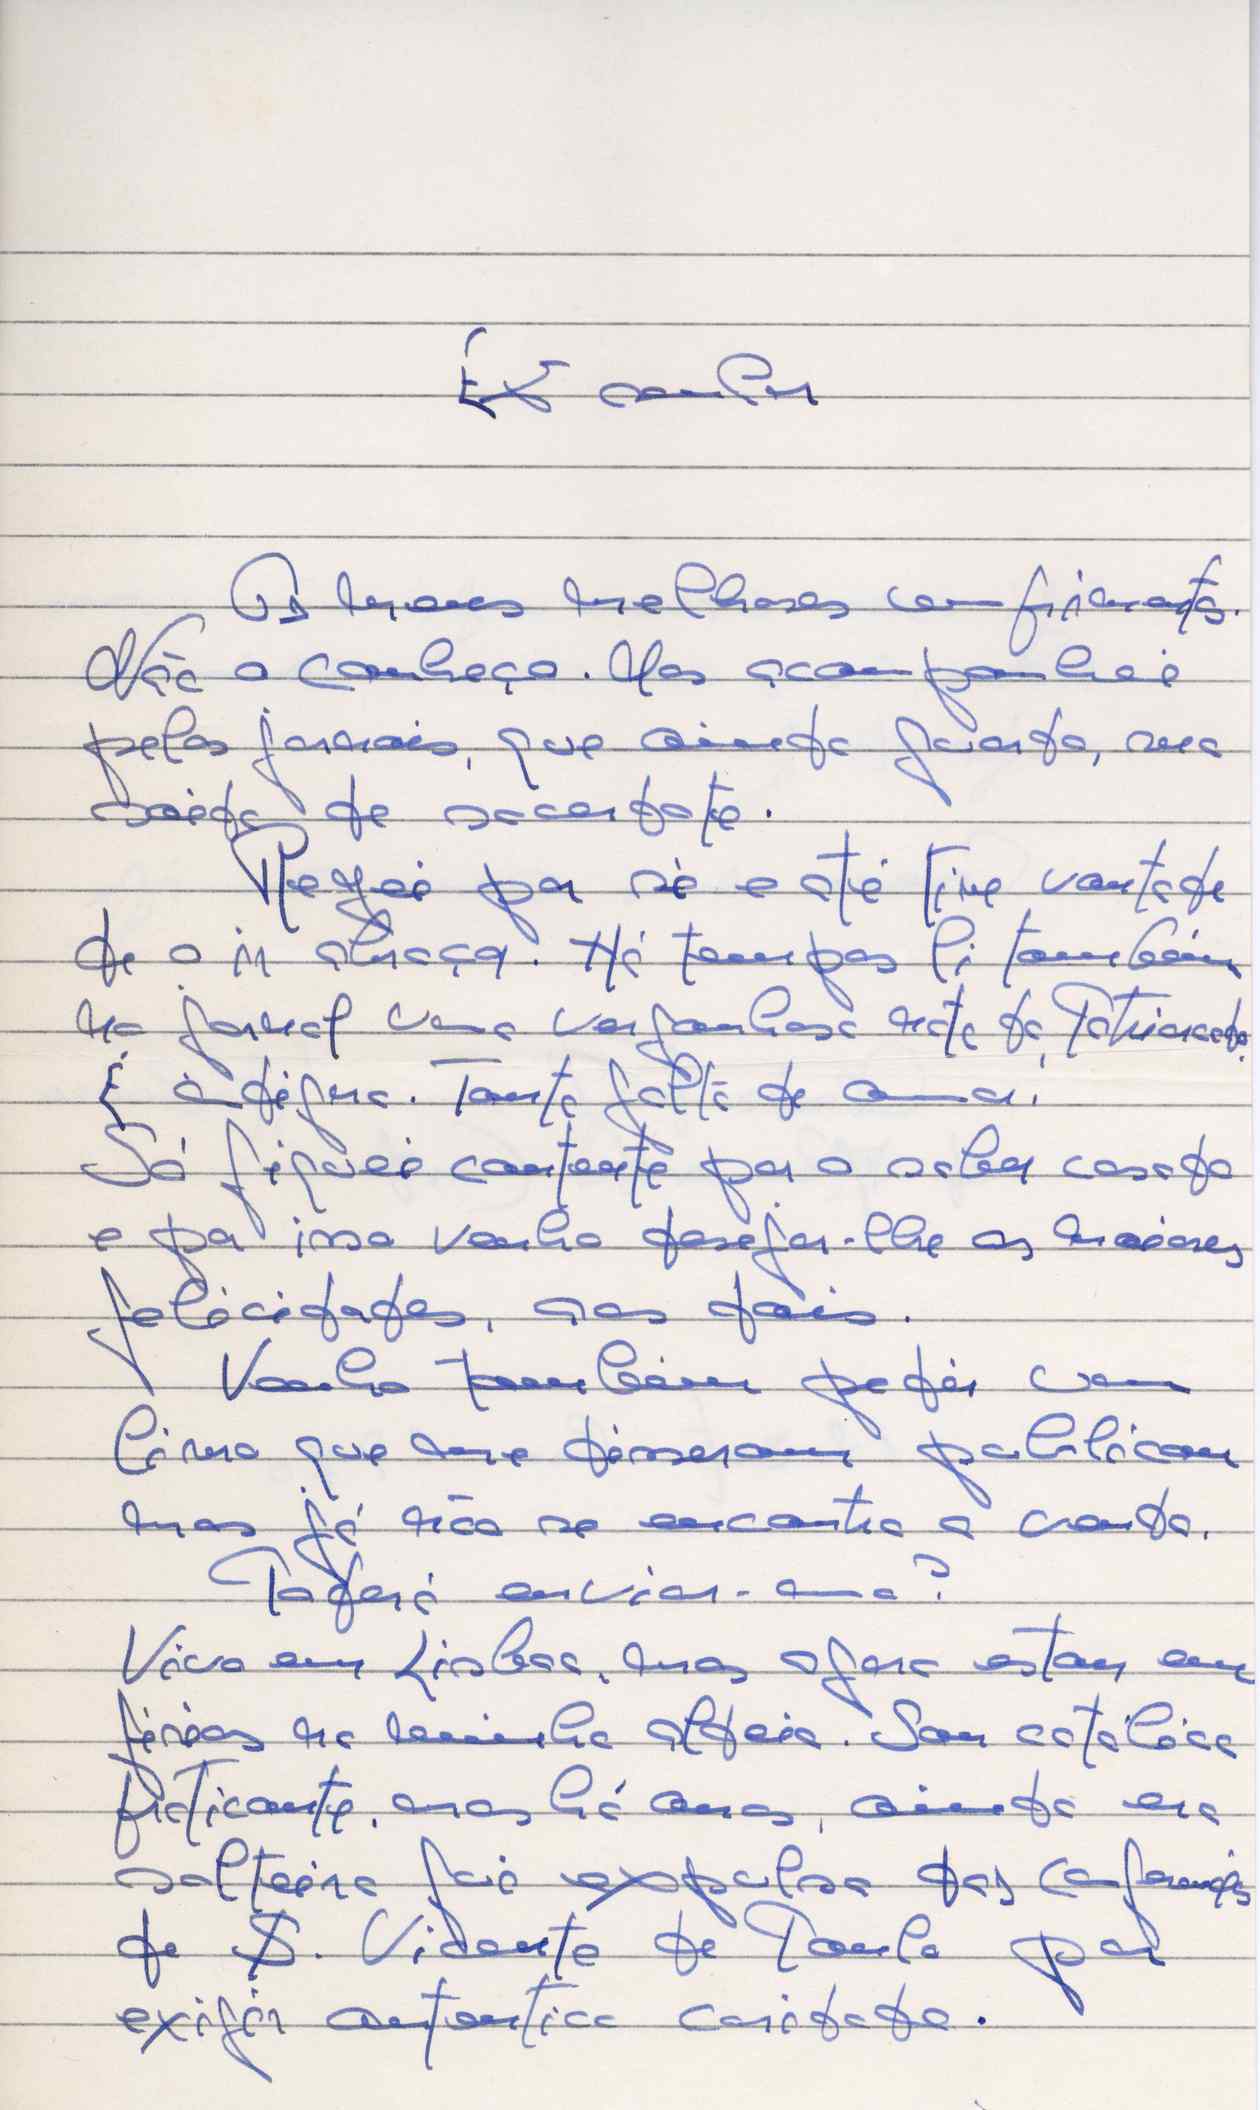 Exº senhor
Os meus melhores cumprimentos.
Não o conheço. Mas acompanhei
pelos jornais, que ainda guardo, sua
saída de sacerdote.
Rezei por si e até tive vontade
de o ir abraçar. Há tempos li também
no jornal uma vergonhosa nota do Patriarcado.
É indigna. Tanta falta de amor!
Só fiquei contente por o saber casado
e por isso venho desejar-lhe as maiores
felicidades, aos dois.
Venho também pedir um
livro que me disseram publicou
mas já não se encontra a venda.
Poderá enviar-mo?
Vivo em Lisboa, mas agora estou em
férias na minha aldeia. Sou católica
praticante, mas há anos, ainda era
solteira fui expulsa das Conferências
de S. Vicente de Paulo por
exigir autentica caridade.